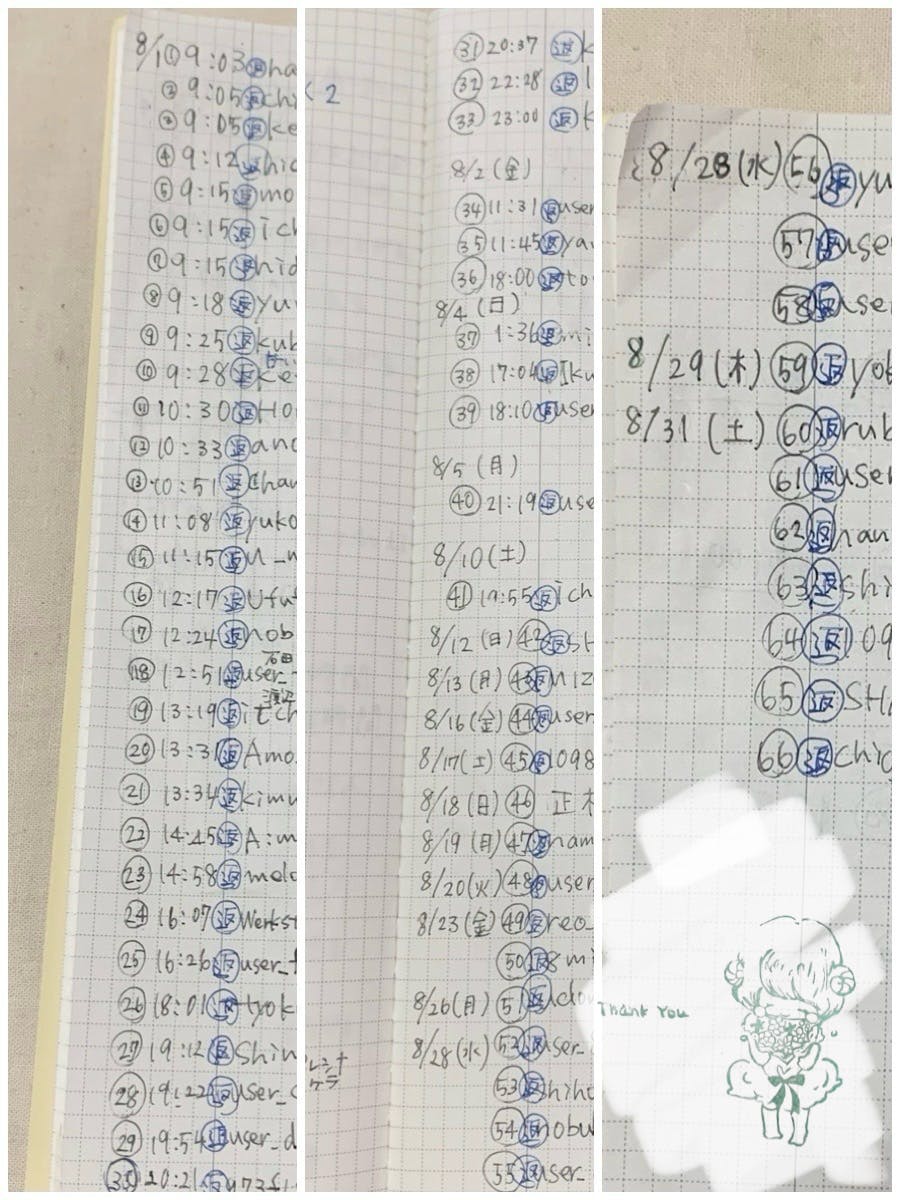 8/1 ① 9:03 返 ha
② 9:05 返 chi
③ 9:05 返 ke
④ 9:12 返 hid
⑤ 9:15 返 mo
⑥ 9:15 返 ich
⑦ 9:15 返 hid
⑧ 9:18 返 yu
⑨ 9:25 返 kub
⑩ 9:28 返 ke
⑪ 10:30 返 Ho
⑫ 10:33 返 and
⑬ 10:51 返 Chan
⑭ 11:08 返 yuko
⑮ 11:15 返 n_n
⑯ 12:17 返 Ufu
⑰ 12:24 返 nob
石田
⑱ 12:51 返 user_
渡辺
⑲ 13:19 返 itch
⑳ 13:31 返 Amo
㉑ 13:34 返 kimu
㉒ 14:45 返 A:m
㉓ 14:58 返 melo
㉔ 16:07 返 Werkst
㉕ 16:26 返 user_f
㉖ 18:01 返 tyok
㉗ 19:12 返 Shin
㉘ 19:22 返 user_c
㉙ 19:54 返 user_d
㉚ 20:21 返 y73f
2
㉛ 20:37 返 k
㉜ 22:28 返 l
㉝ 23:00 返 k
8/2 (金)
㉞ 11:31 返 user
㉟ 11:45 返 ya
㊱ 18:00 返 to
8/4 (日)
㊲ 1:36 返 mi
㊳ 17:04 返 Iku
㊴ 18:10 返 user
8/5 (月)
㊵ 21:19 返 use
8/10 (土)
㊶ 19:55 返 ich
8/12 (日) ㊷ 返 st
8/13 (月) ㊸ 返 niz
8/16 (金) ㊹ 返 user
8/17 (土) ㊺ 返 1098
8/18 (日) ㊻ 正木
8/19 (月) ㊼ 返 nam
8/20 (火) ㊽ 返 user
8/23 (金) ㊾ 返 reo_
㊿ 返 8mi
8/26 (月) 51 返 clov
8/28 (水) 52 返 user_
53 返 hiho
54 返 nobu
55 返 user_
8/28 (水) 56 返 yu
57 返 use
58 返 user
8/29 (木) 59 返 yob
8/31 (土) 60 返 rub
61 返 user
62 返 han
63 返 shi
64 返 109
65 返 SH
66 返 chic
Thank You